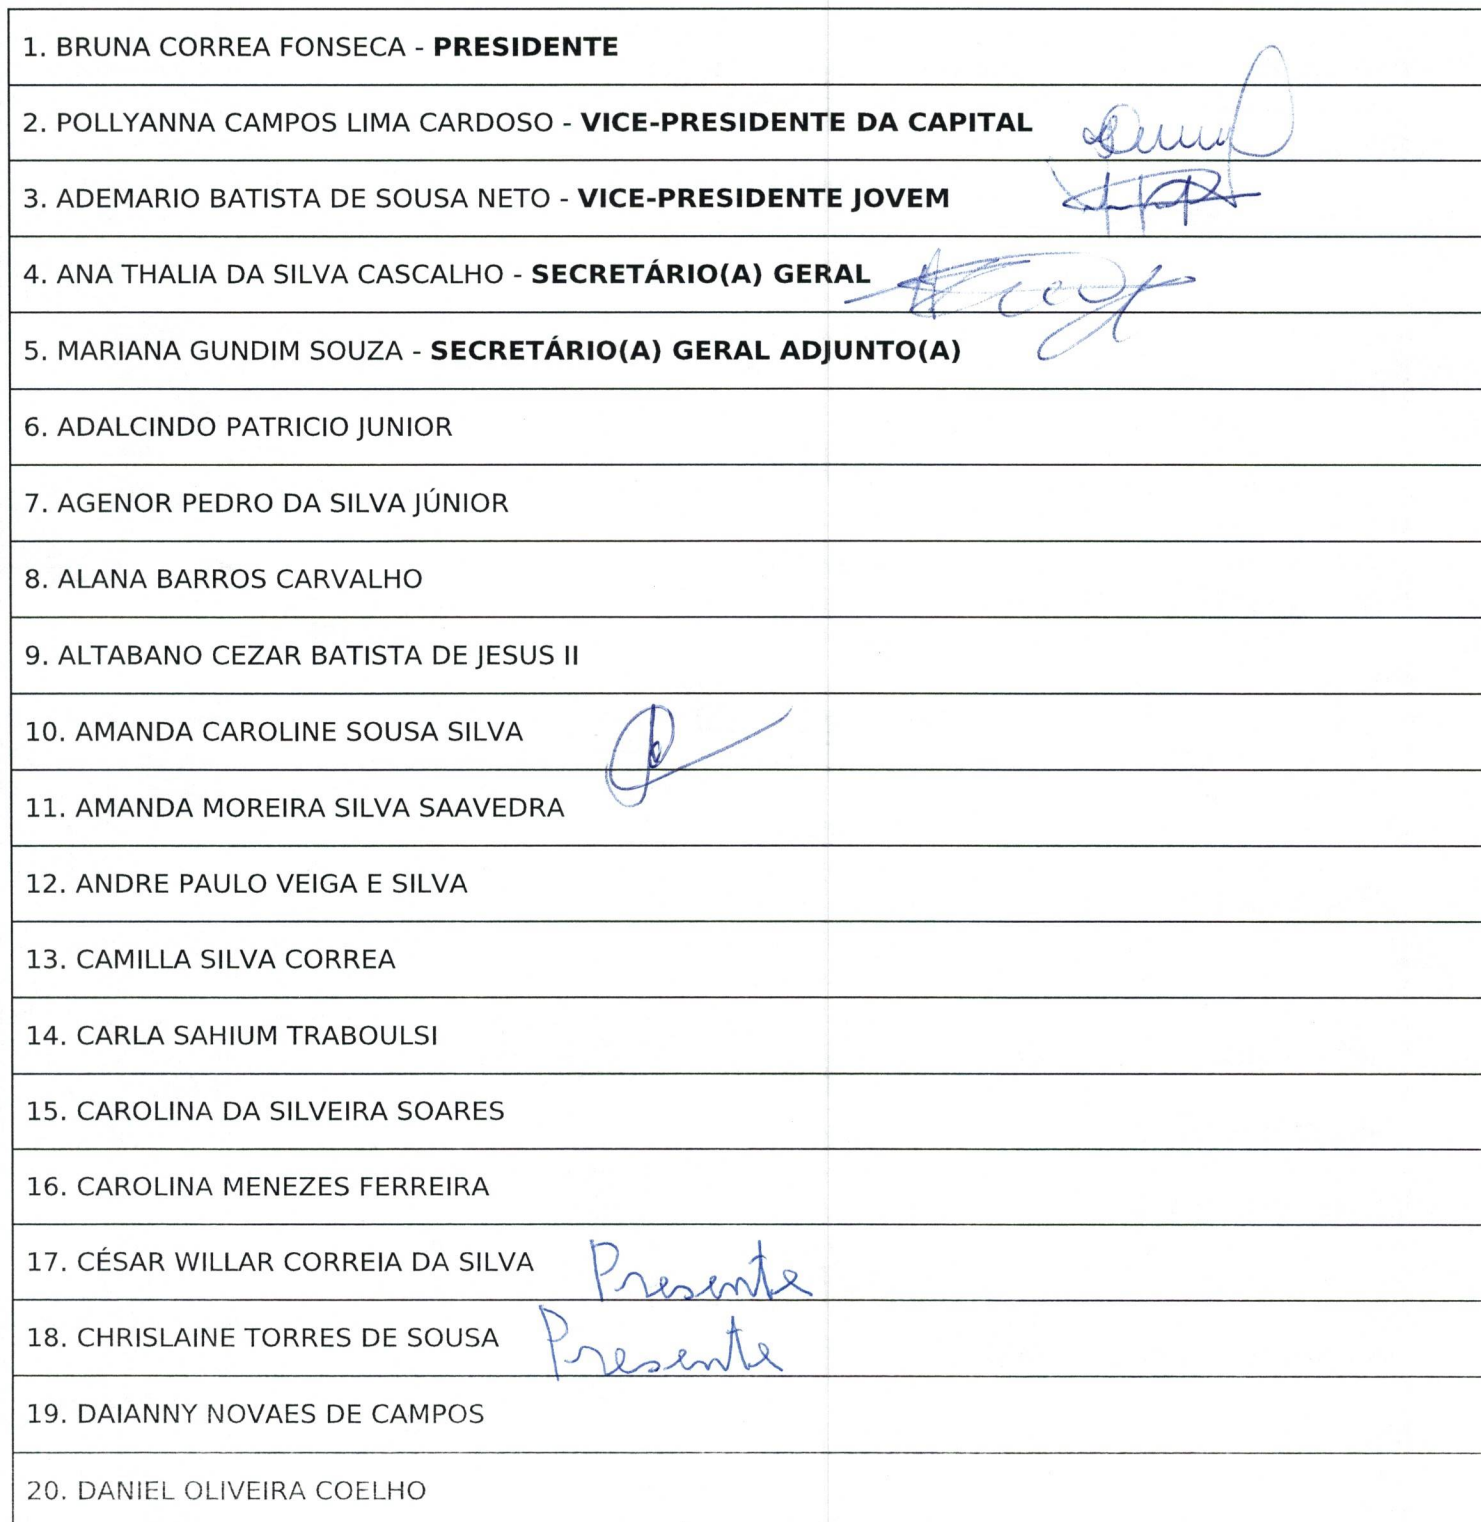 1. BRUNA CORREA FONSECA - PRESIDENTE
2. POLLYANNA CAMPOS LIMA CARDOSO - VICE-PRESIDENTE DA CAPITAL
3. ADEMARIO BATISTA DE SOUSA NETO - VICE-PRESIDENTE JOVEM
4. ANA THALIA DA SILVA CASCALHO - SECRETÁRIO(A) GERAL
5. MARIANA GUNDIM SOUZA - SECRETÁRIO(A) GERAL ADJUNTO(A)
6. ADALCINDO PATRICIO JUNIOR
7. AGENOR PEDRO DA SILVA JÚNIOR
8. ALANA BARROS CARVALHO
9. ALTABANO CEZAR BATISTA DE JESUS II
10. AMANDA CAROLINE SOUSA SILVA
11. AMANDA MOREIRA SILVA SAAVEDRA
12. ANDRE PAULO VEIGA E SILVA
13. CAMILLA SILVA CORREA
14. CARLA SAHIUM TRABOULSI
15. CAROLINA DA SILVEIRA SOARES
16. CAROLINA MENEZES FERREIRA
17. CÉSAR WILLAR CORREIA DA SILVA Presente
18. CHRISLAINE TORRES DE SOUSA Presente
19. DAIANNY NOVAES DE CAMPOS
20. DANIEL OLIVEIRA COELHO